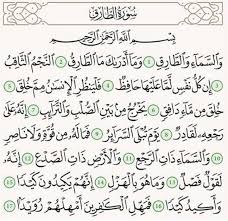 سُورَةُ الطَّارِقِ
بِسْمِ اللَّهِ الرَّحْمَٰنِ الرَّحِيمِ
وَالسَّمَاءِ وَالطَّارِقِ 1 وَمَا أَدْرَاكَ مَا الطَّارِقُ 2 النَّجْمُ الثَّاقِبُ
3 إِن كُلُّ نَفْسٍ لَّمَّا عَلَيْهَا حَافِظٌ 4 فَلْيَنظُرِ الْإِنسَانُ مِمَّ خُلِقَ 5
خُلِقَ مِن مَّاءٍ دَافِقٍ 6 يَخْرُجُ مِن بَيْنِ الصُّلْبِ وَالتَّرَائِبِ 7 إِنَّهُ عَلَىٰ
رَجْعِهِ لَقَادِرٌ 8 يَوْمَ تُبْلَى السَّرَائِرُ 9 فَمَا لَهُ مِن قُوَّةٍ وَلَا نَاصِرٍ
10 وَالسَّمَاءِ ذَاتِ الرَّجْعِ 11 وَالْأَرْضِ ذَاتِ الصَّدْعِ 12 إِنَّهُ
لَقَوْلٌ فَصْلٌ 13 وَمَا هُوَ بِالْهَزْلِ 14 إِنَّهُمْ يَكِيدُونَ كَيْدًا
15 وَأَكِيدُ كَيْدًا 16 فَمَهِّلِ الْكَافِرِينَ أَمْهِلْهُمْ رُوَيْدًا 17